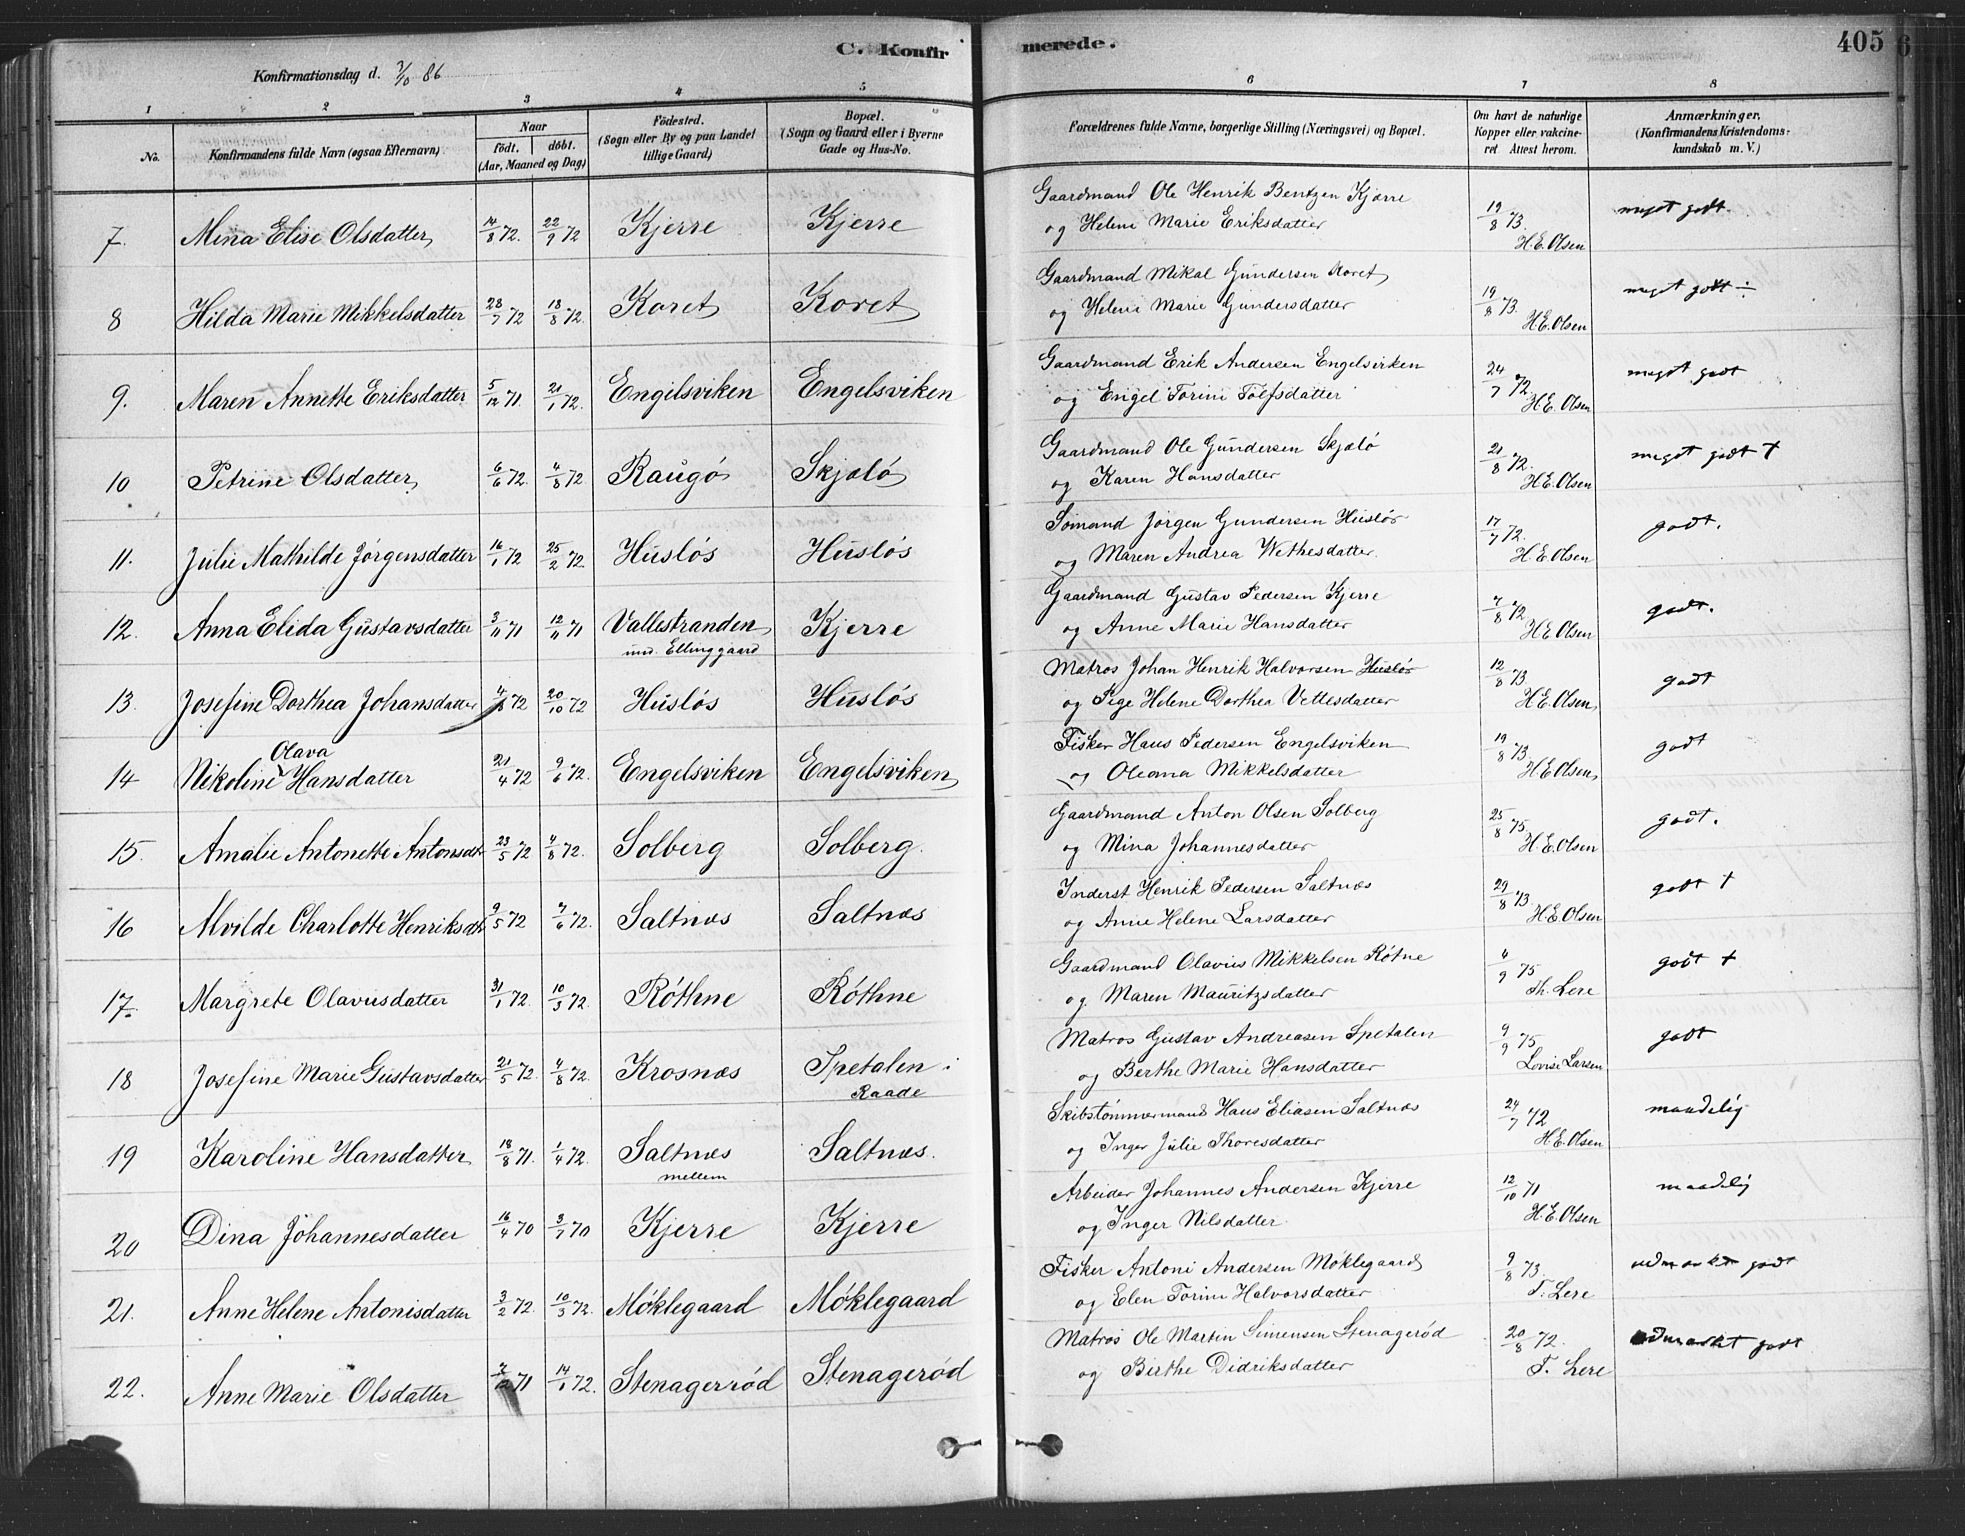 C. Konfirmerede.
405
Konfirmationsdag d. 3/10 86
1 2 3 4 5 6 7 8
No. | Konfirmandens fulde Navn (ogsaa Efternavn) | Naar født. døbt. (Aar, Maaned og Dag) | Fødested. (Sogn eller By og paa Landet tillige Gaard) | Bopæl. (Sogn og Gaard eller i Byerne Gade og Hus-No. | Forældrenes fulde Navne, borgerlige Stilling (Næringsvei) og Bopæl. | Om havt de naturlige Kopper eller vakcineret Attest herom. | Anmærkninger. (Konfirmandens Kristendomskundskab m. V.)
7. Mina Elise Olsdatter 14/8 72. 22/9 72 Kjerre Kjerre Gaardmand Ole Henrik Bentzen Kjærre 19/8 73. meget godt.
og Helene Marie Eriksdatter H.E. Olsen
8 Hilda Marie Mikkelsdatter 28/7 72 18/8 72. Koret Koret Gaardmand Mikal Gundersen Koret 19/8 73. meget godt ÷
og Helene Marie Gundersdatter H.E. Olsen
9. Maren Annette Eriksdatter 5/12 71. 21/1 72. Engelsviken Engelsviken Gaardmand Erik Andersen Engelsviken 24/7 72. meget godt
og Engel Torine Tolfsdatter H.E. Olsen
10 Petrine Olsdatter 6/6 72. 4/8 72 Raugø Skjælø Gaardmand Ole Gundersen Skjælø 21/8 72. meget godt +
og Karen Hansdatter H.E. Olsen
11. Julie Mathilde Jørgensdatter 16/1 72 25/2 72. Husløs Husløs Sømand Jørgen Gundersen Husløs 17/7 72. godt.
og Maren Andrea Wethesdatter. H.E. Olsen
12. Anna Elida Gustavsdatter 3/11 71 12/11 71 Vallestranden Kjerre Gaardmand Gustav Pedersen Kjerre 7/8 72 godt.
und. Ellinggaard og Anne Marie Hansdatter H.E. Olsen
13. Josefine Dorthea Johansdatter 4/8 72 20/10 72 Husløs Husløs Matros Johan Henrik Halvorsen Husløs 12/8 73. godt
og Pige Helene Dorthea Vettesdatter H.E. Olsen
Olava
14 Nikoline Hansdatter 21/4 72 9/6 72. Engelsviken Engelsviken Fisker Hans Pedersen Engelsviken 19/8 73. godt
og Oleana Mikkelsdatter H.E. Olsen
15. Amalie Antonette Antonsdt 23/5 72 4/8 72. Solberg Solberg. Gaardmand Anton Olsen Solberg 25/8 75. godt.
og Mina Johannesdatter H.E. Olsen
16 Alvilde Charlotte Henriksdt 9/5 72 9/6 72. Saltnæs Saltnæs Inderst Henrik Pedersen Saltnæs 29/8 73. godt +
og Anne Helene Larsdatter H.E. Olsen
17. Margrete Olavusdatter 31/1 72. 10/3 72. Røthne Røthne Gaardmand Olavus Mikkelsen Røtne 4/9 75 godt +
og Maren Mauritzsdatter Th. Lere
18 Josefine Marie Gustavsdatter 21/5 72. 4/8 72. Krosnæs Spetalen i Matros Gustav Andreasen Spetalen 9/9 75 godt
Raade og Berthe Marie Hansdatter Lovise Larsen
19 Karoline Hansdatter 18/8 71. 1/4 72. Saltnæs Saltnæs. Skibstømmermand Hans Eliasen Saltnæs 24/7 72 maadelig
mellem og Inger Julie Thoresdatter H.E. Olsen
20 Dina Johannesdatter 16/4 70 3/7 70 Kjerre Kjerre Arbeider Johannes Andersen Kjerre 12/10 71 maadelig
og Inger Nilsdatter H.E. Olsen
21. Anne Helene Antonisdatter 3/2 72. 10/3 72. Møklegaard Møklegaard Fisker Antoni Andersen Møklegaard 9/8 73. udmærket godt
og Elen Torine Halvorsdatter T. Lere
22. Anne Marie Olsdatter 71 14/1 72. Stenagerrød Stenagerød Matros Ole Martin Simensen Stenagerød 20/8 72. udmærket godt
og Birthe Didriksdatter T. Lere